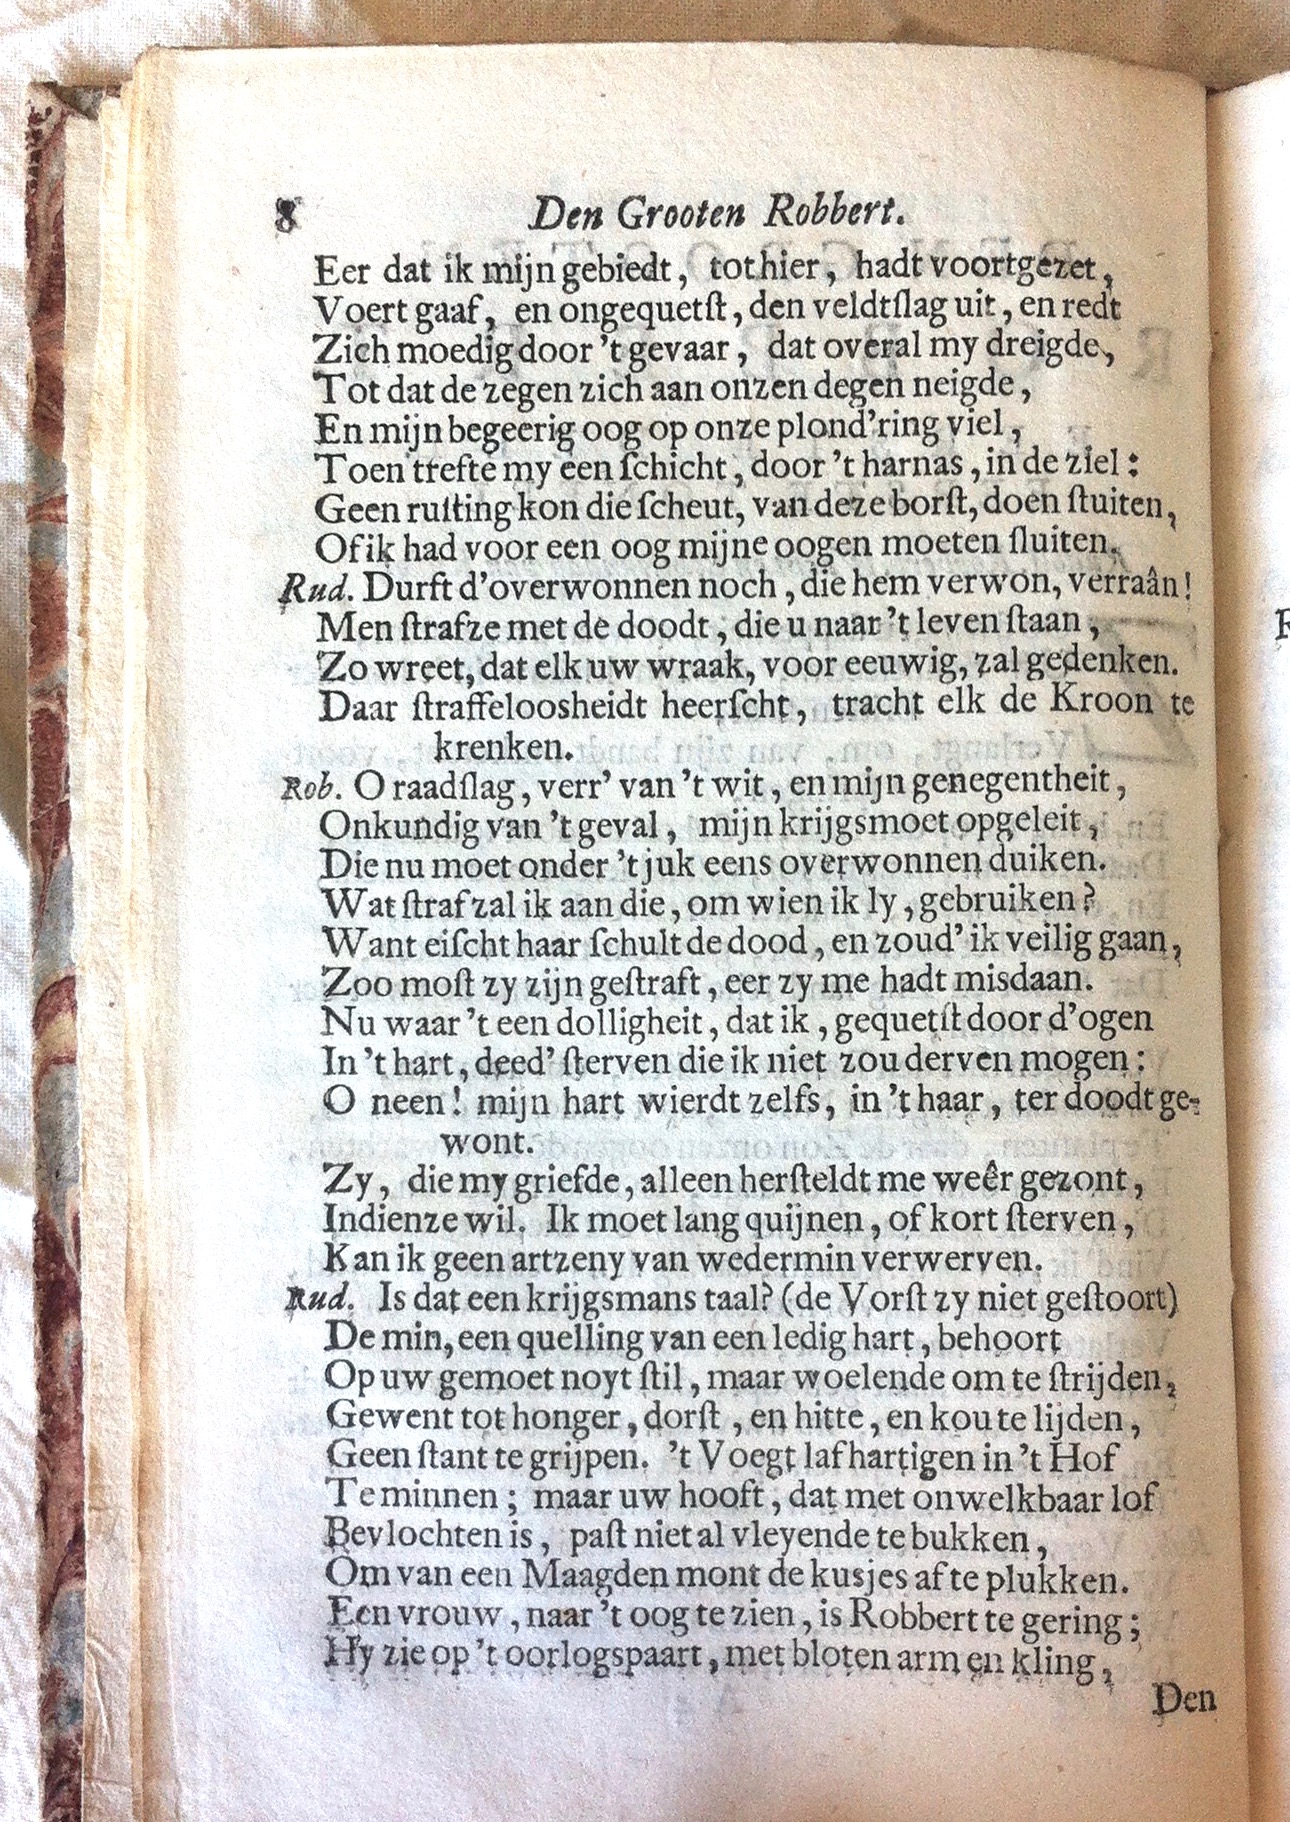 8 Den Grooten Robbert.
Eer dat ik mijn gebiedt, tot hier, hadt voortgezet,
Voert gaaf, en ongequetſt, den veldtſlag uit, en redt
Zich moedig door 't gevaar, dat overal my dreigde,
Tot dat de zegen zich aan onzen degen neigde,
En mijn begeerig oog op onze plond'ring viel,
Toen trefte my een ſchicht, door 't harnas, in de ziel:
Geen ruſting kon die ſcheut, van deze borſt, doen ſtuiten,
Of ik had voor een oog mijne oogen moeten ſluiten.
Rud. Durft d'overwonnen noch, die hem verwon, verraân!
Men ſtrafze met de doodt, die u naar 't leven ſtaan,
Zo wreet, dat elk uw wraak, voor eeuwig, zal gedenken.
Daar ſtraffeloosheidt heerſcht, tracht elk de Kroon te
krenken.
Rob. O raadſlag, verr' van 't wit, en mijn genegentheit,
Onkundig van 't geval, mijn krijgsmoet opgeleit,
Die nu moet onder 't juk eens overwonnen duiken.
Wat ſtraf zal ik aan die, om wien ik ly, gebruiken?
Want eiſcht haar ſchult de dood, en zoud' ik veilig gaan,
Zoo moſt zy zijn geſtraft, eer zy me hadt misdaan.
Nu waar 't een dolligheit, dat ik, gequetſt door d'ogen
In 't hart, deed' ſterven die ik niet zou derven mogen:
O neen! mijn hart wierdt zelfs, in 't haar, ter doodt ge-
wont.
Zy, die my griefde, alleen herſteldt me weêr gezont,
Indienze wil. Ik moet lang quijnen, of kort ſterven,
Kan ik geen artzeny van wedermin verwerven.
Rud. Is dat een krijgsmans taal? (de Vorſt zy niet geſtoort)
De min, een quelling van een ledig hart, behoort
Op uw gemoet noyt ſtil, maar woelende om te ſtrijden,
Gewent tot honger, dorſt, en hitte, en kou te lijden,
Geen ſtant te grijpen. 't Voegt lafhartigen in 't Hof
Te minnen; maar uw hooft, dat met onwelkbaar lof
Bevlochten is, paſt niet al vleyende te bukken,
Om van een Maagden mont de kusjes af te plukken.
Een vrouw, naar 't oog te zien, is Robbert te gering;
Hy zie op 't oorlogspaart, met bloten arm en kling,
Den